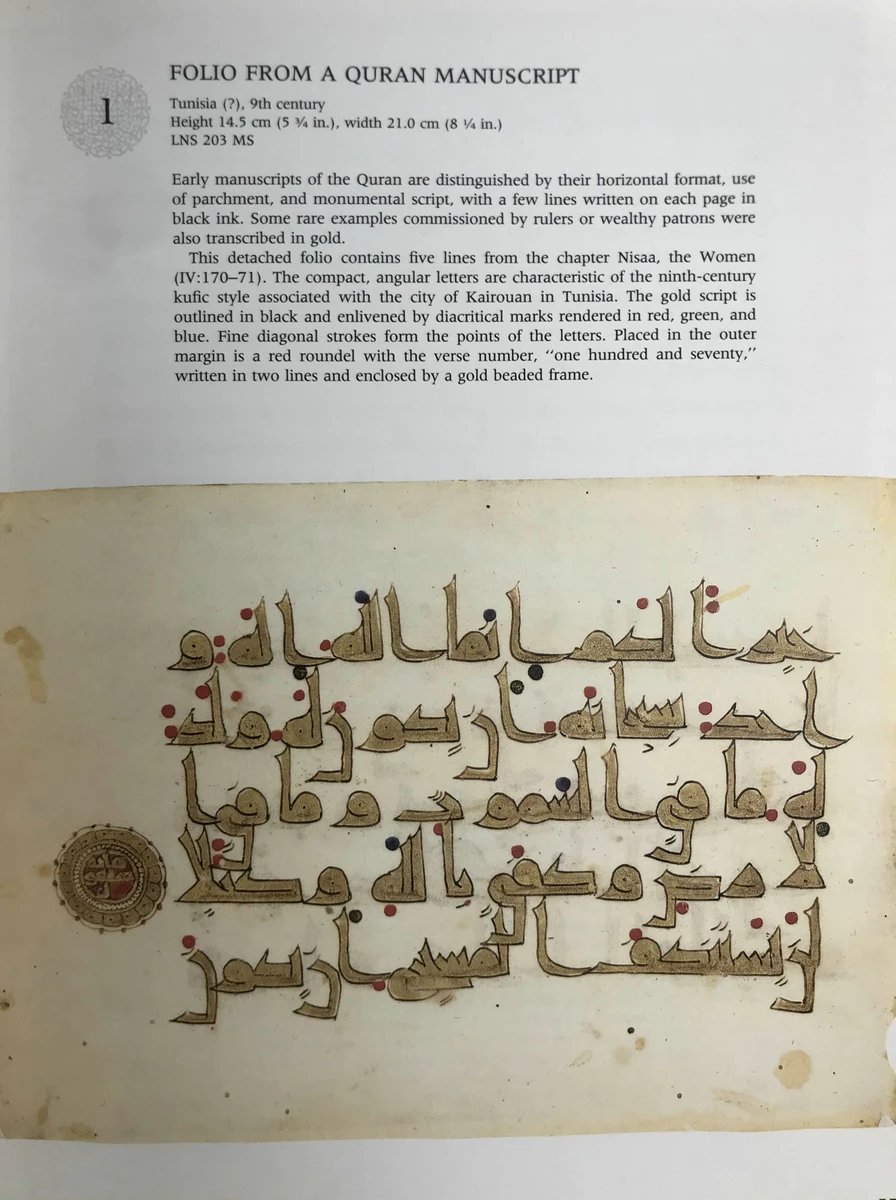 1
FOLIO FROM A QURAN MANUSCRIPT
Tunisia (?), 9th century
Height 14.5 cm (5 ¾ in.), width 21.0 cm (8 ¼ in.)
LNS 203 MS
Early manuscripts of the Quran are distinguished by their horizontal format, use
of parchment, and monumental script, with a few lines written on each page in
black ink. Some rare examples commissioned by rulers or wealthy patrons were
also transcribed in gold.
This detached folio contains five lines from the chapter Nisaa, the Women
(IV:170–71). The compact, angular letters are characteristic of the ninth-century
kufic style associated with the city of Kairouan in Tunisia. The gold script is
outlined in black and enlivened by diacritical marks rendered in red, green, and
blue. Fine diagonal strokes form the points of the letters. Placed in the outer
margin is a red roundel with the verse number, “one hundred and seventy,”
written in two lines and enclosed by a gold beaded frame.
خيرا لكم انما الله اله و
احد سبحنه ان يكون له ولد
له ما في السموت وما في ا
لارض وكفى بالله وكيلا
لن يستنكف المسيح ان يكون